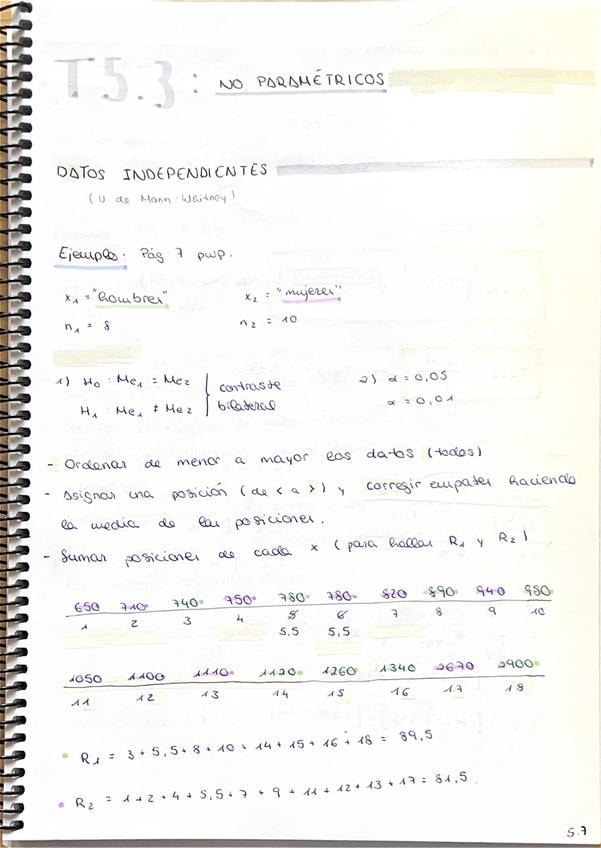 T5.3: NO PARAMÉTRICOS
DATOS INDEPENDIENTES
(U de Mann-Whitney)
Ejemplo: Pág 7 pwp.
x₁ = "hombres" x₂ = "mujeres"
n₁ = 8 n₂ = 10
1) H₀ : Me₁ = Me₂ contraste 2) α = 0,05
H₁ : Me₁ ≠ Me₂ bilateral α = 0,01
- Ordenar de menor a mayor los datos (todos)
- Asignar una posición (de < a >) y corregir empates haciendo
la media de las posiciones.
- Sumar posiciones de cada x (para hallar R₁ y R₂)
650 710 740 750 780 780 820 890 940 950
1 2 3 4 5 6 7 8 9 10
5,5 5,5
1050 1100 1110 1120 1260 1340 2670 2900
11 12 13 14 15 16 17 18
R₁ = 3 + 5,5 + 8 + 10 + 14 + 15 + 16 + 18 = 89,5
R₂ = 1 + 2 + 4 + 5,5 + 7 + 9 + 11 + 12 + 13 + 17 = 81,5.
5.7